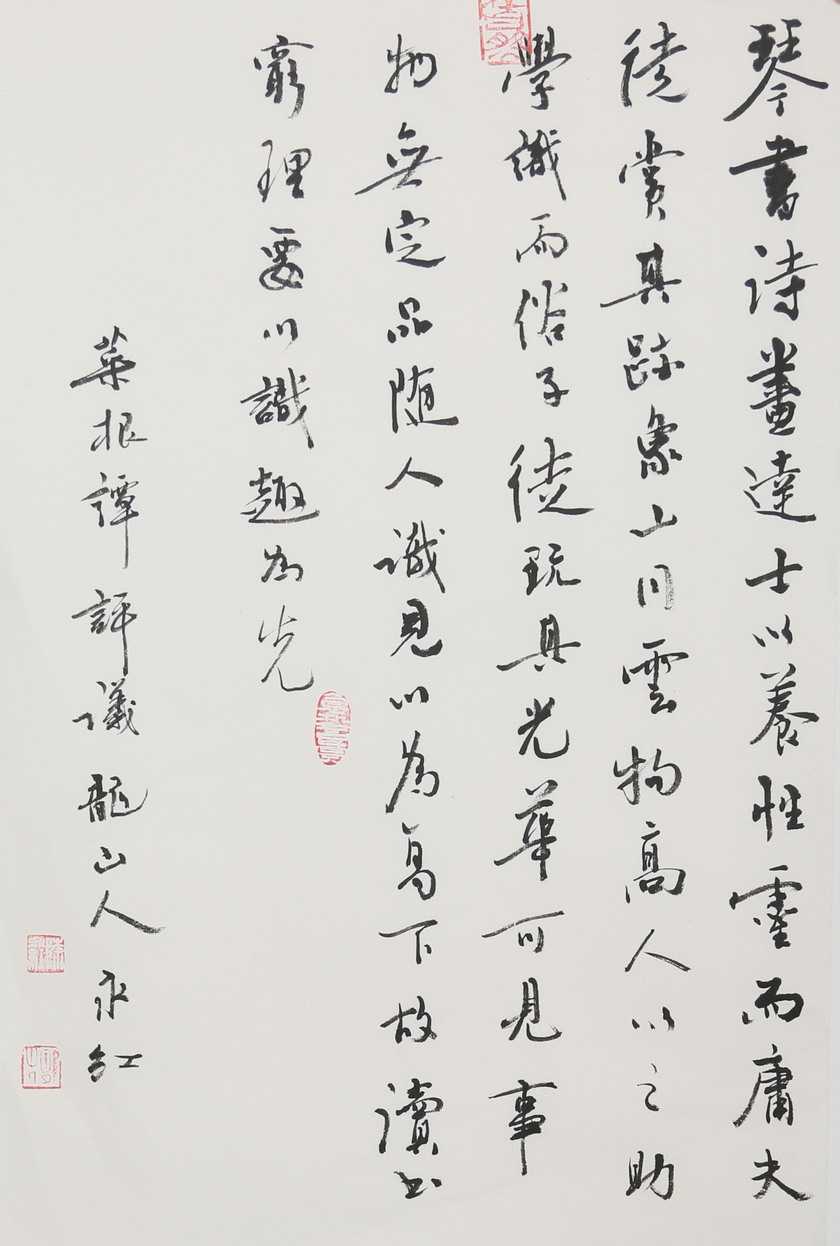 琴書詩畫達士以養性靈而庸夫
徒賞其跡象山川雲物高人以之助
學識而俗子徒玩其光華可見事
物無定品随人識見以為高下故讀書
窮理要以識趣為先
菜根譚評議龍山人永紅